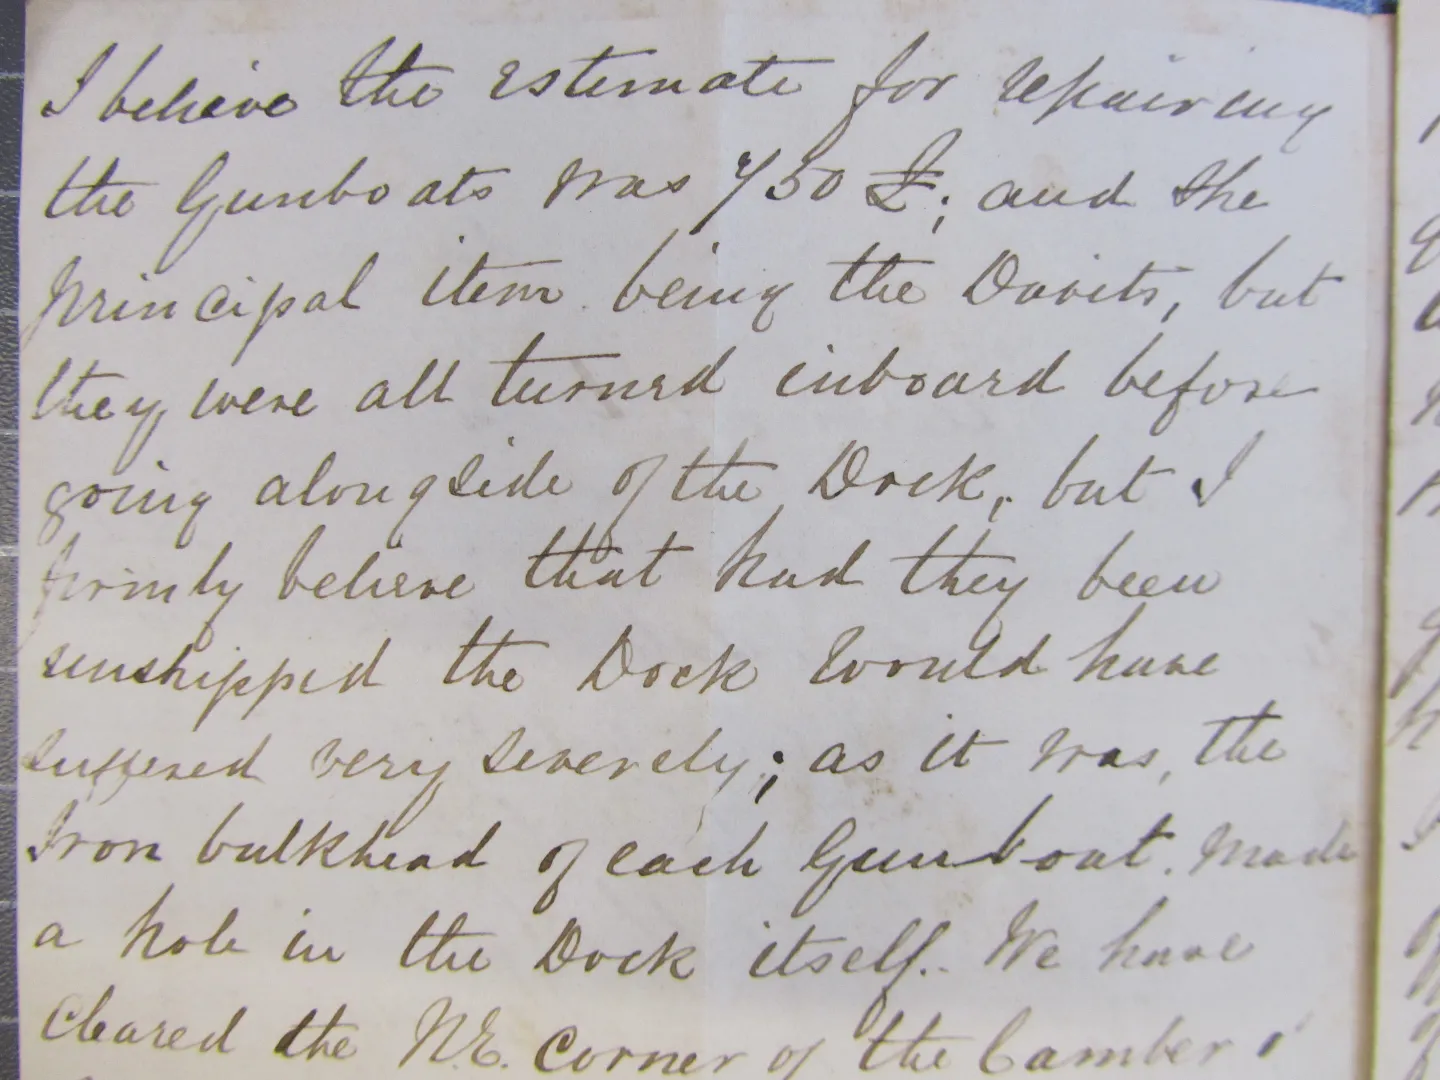 I believe the estimate for repairing
the Gunboats was 750 £; and the
principal item being the Davits, but
they were all turned inboard before
going alongside of the Dock, but I
firmly believe that had they been
unshipped the Dock would have
suffered very severely; as it was, the
Iron bulkhead of each Gunboat. made
a hole in the Dock itself. We have
Cleared the N.E. Corner of the Camber